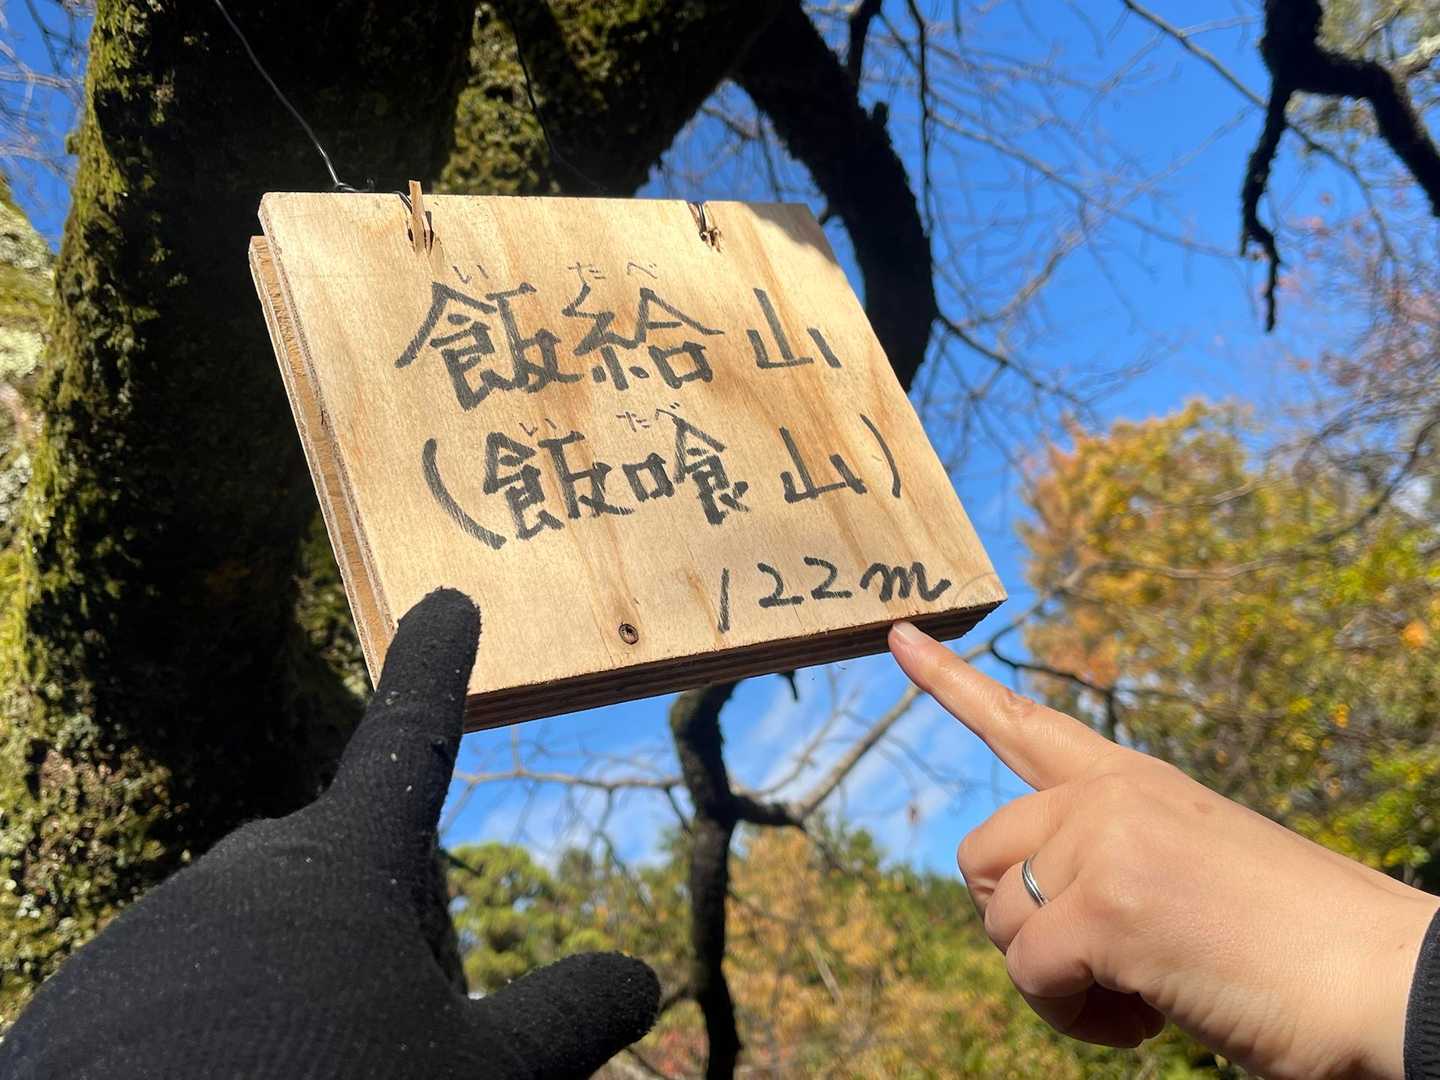 いたべ
飯給山
いたべ
(飯喰山)
122m